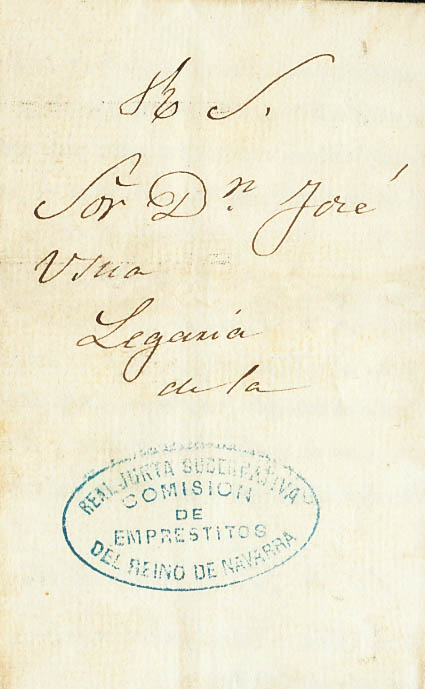 R S.
Sõr Dn. José
Usua
Legaria
de la
REAL JUNTA GUBERNATIVA
COMISION
DE
EMPRESTITOS
DEL REINO DE NAVARRA